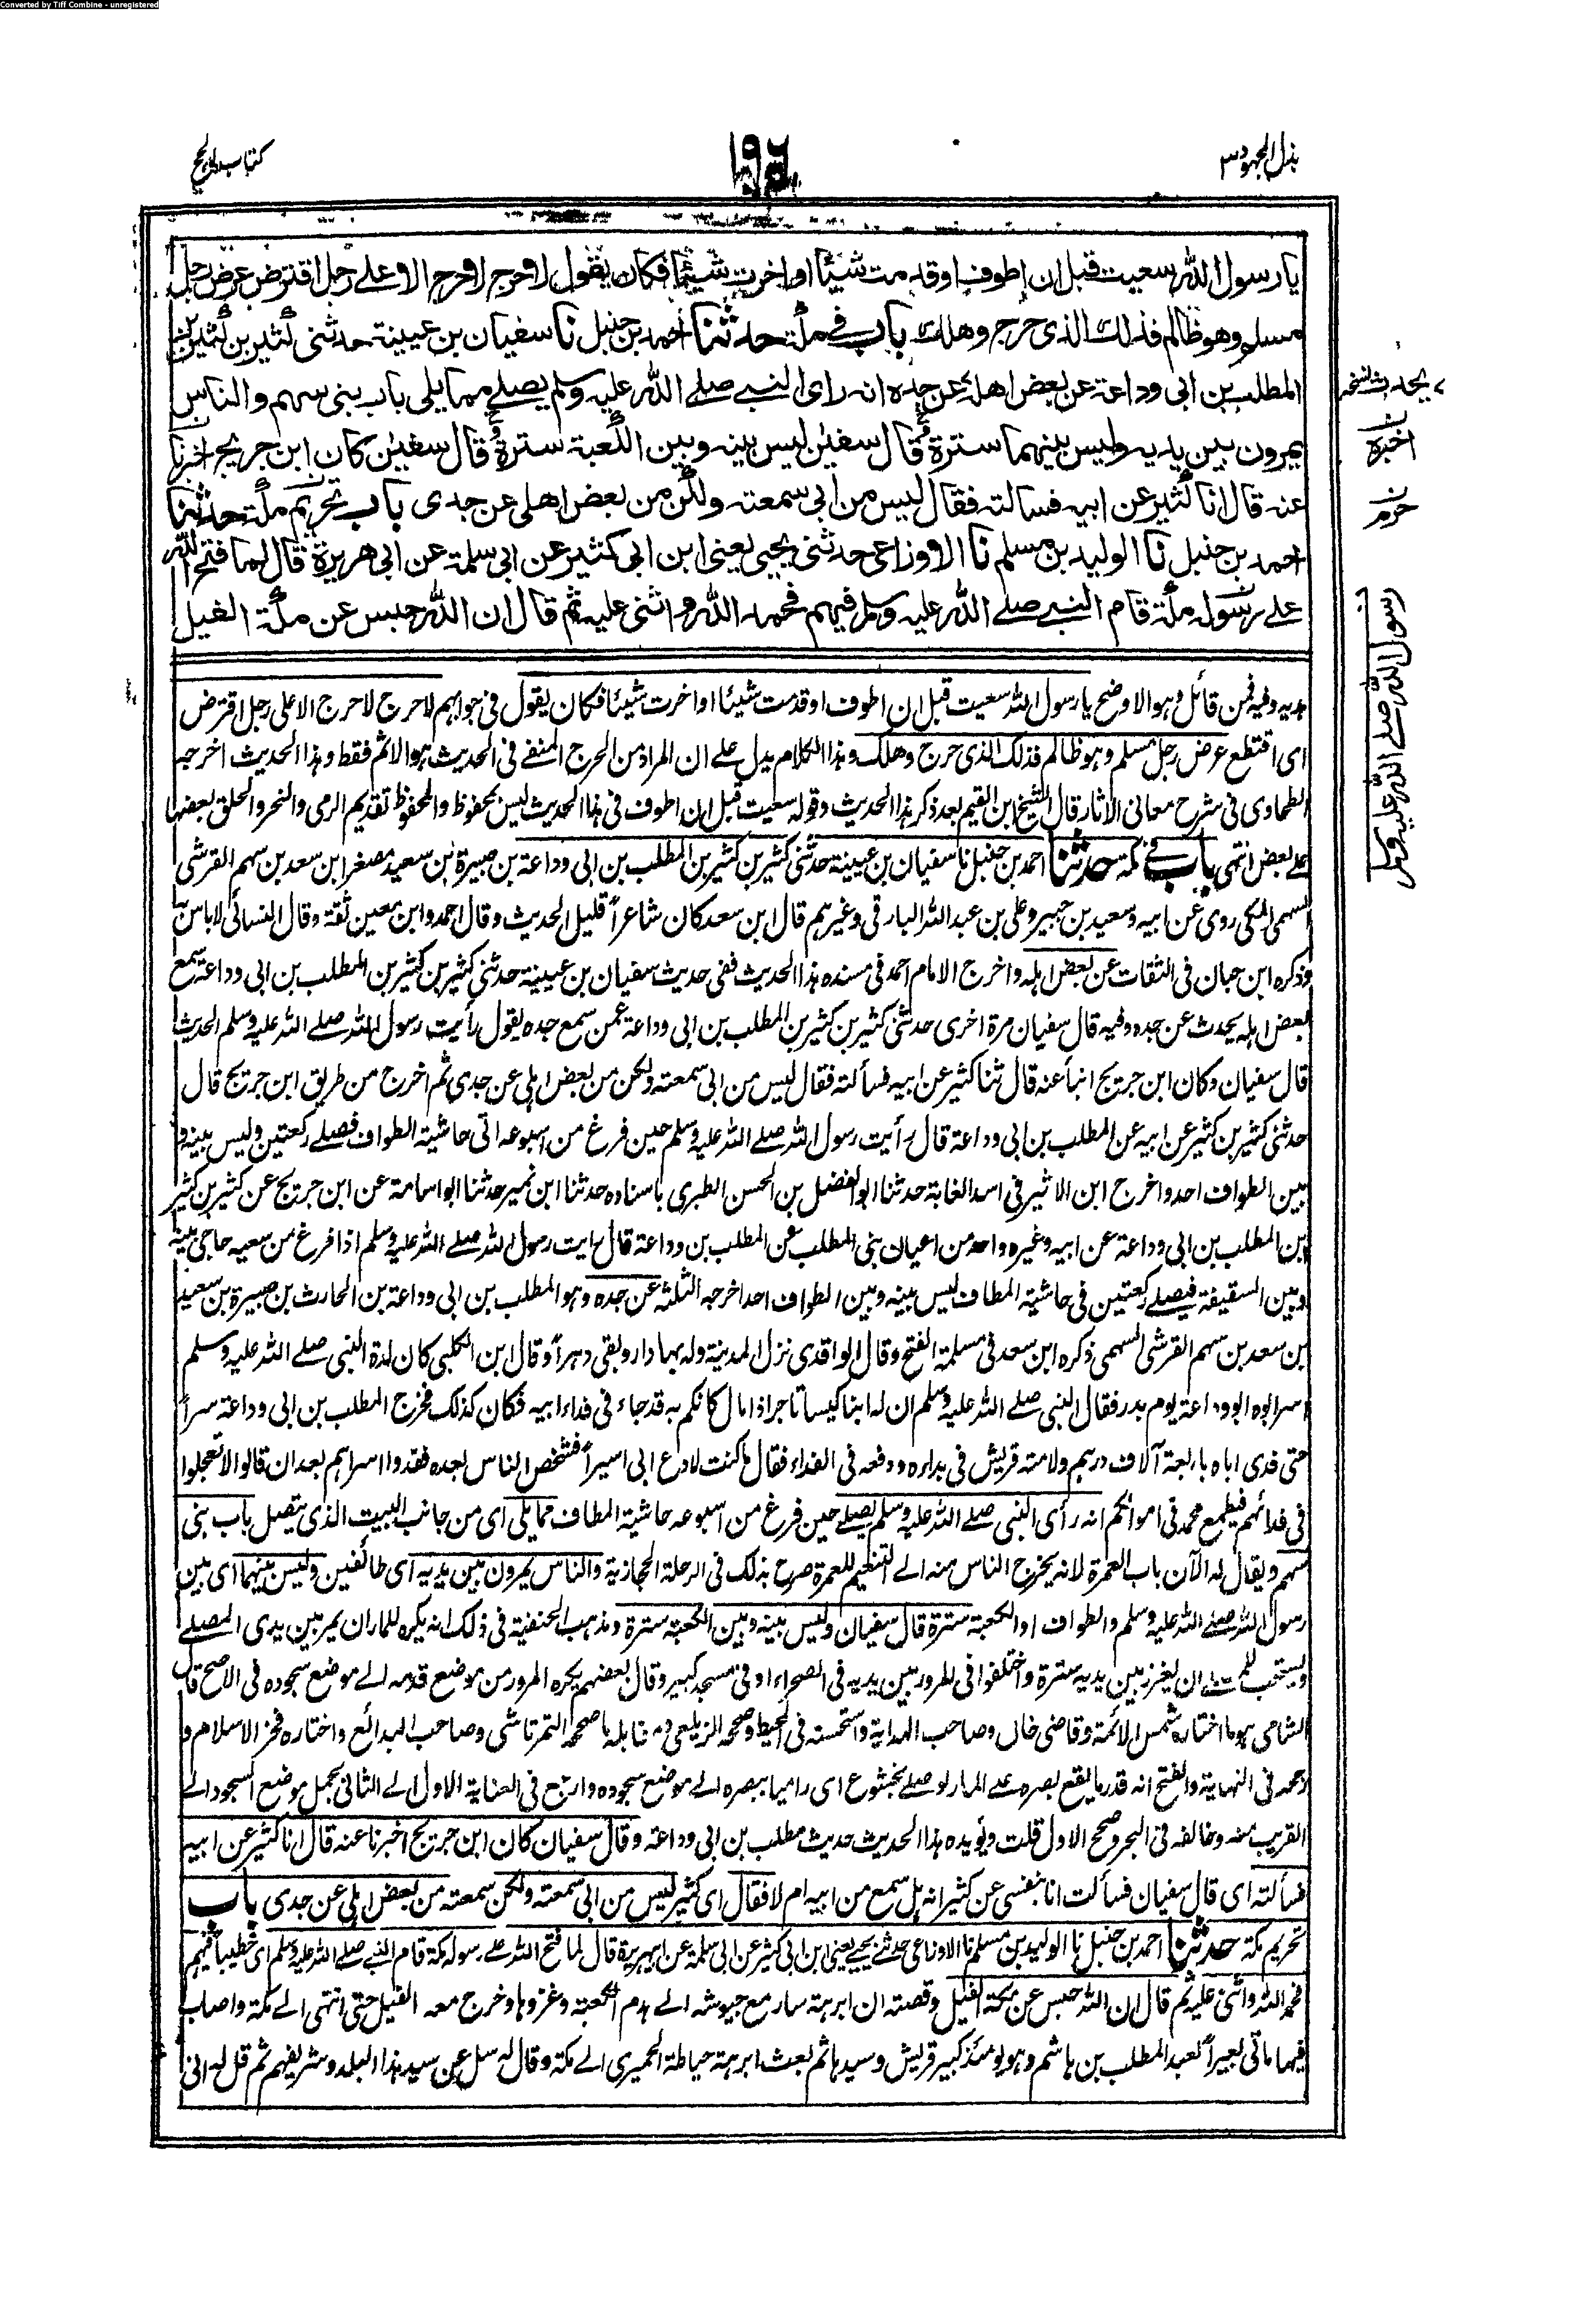 Converted by Tiff Combine - unregistered
بذل المجهود ٣
١٩٤
كتاب الحج
يا رسول الله سعيت قبل ان اطوف او قدمت شيئا او اخرت شيئا فكان يقول لا حرج لا حرج الا على رجل اقترض عرض رجل
مسلم وهو ظالم فذلك الذى حرج وهلك باب فى مكة حدثنا احمد بن حنبل نا سفيان بن عيينة حدثنى كثير بن كثير بن
المطلب بن ابى وداعة عن بعض اهله عن جده انه راى النبى صلے الله عليه وسلم يصلے مما يلى باب بنى سهم والناس
يمرون بين يديه وليس بينهما سترة قال سفيٰن ليس بينه وبين الكعبة سترة قال سفيٰن كان ابن جريج اخبرنا
عنه قال انا كثير عن ابيه فسالته فقال ليس من ابى سمعته ولكن من بعض اهلى عن جدى باب تحريم مكة حدثنا
احمد بن حنبل نا الوليد بن مسلم نا الاوزاعى حدثنى يحيى يعنى ابن ابى كثير عن ابى سلمة عن ابى هريرة قال لما فتح الله
على رسوله مكة قام النبى صلے الله عليه وسلم فيهم فحمد الله واثنى عليه ثم قال ان الله حبس عن مكة الفيل
يحدث نسخه
اخبره
حرم
رسول الله صلے الله عليه وسلم
يديه وفيه فمن قائل وهو الاوضح يا رسول الله سعيت قبل ان اطوف او قدمت شيئا او اخرت شيئا فكان يقول فى جوابهم لا حرج لا حرج الا على رجل اقترض
اى اقتطع عرض رجل مسلم وهو ظالم فذلك الذى حرج وهلك وهذا الكلام يدل على ان المراد من الحرج المنفى فى الحديث هو الاثم فقط وهذا الحديث اخرجه
الطحاوى فى شرح معانى الاثار قال الشيخ ابن القيم بعد ذكر هذا الحديث وقوله سعيت قبل ان اطوف فى هذا الحديث ليس بمحفوظ والمحفوظ تقديم الرمى والنحر والحلق بعضها
على بعض انتهى باب فى مكة حدثنا احمد بن حنبل نا سفيان بن عيينة حدثنى كثير بن كثير بن المطلب بن ابى وداعة بن صبيرة بن سعيد مصغرا بن سعد بن سهم القرشى
السهمى المكى روى عن ابيه وسعيد بن جبير وعلى بن عبد الله البارقى وغيرهم قال ابن سعد كان شاعراً قليل الحديث وقال احمد وابن معين ثقة وقال النسائى لا باس به
وذكره ابن حبان فى الثقات عن بعض اهله واخرج الامام احمد فى مسنده هذا الحديث ففى حديث سفيان بن عيينة حدثنى كثير بن كثير بن المطلب بن ابى وداعة سمع
بعض اهله يحدث عن جده وفيه قال سفيان مرة اخرى حدثنى كثير بن كثير بن المطلب بن ابى وداعة عمن سمع جده يقول رأيت رسول الله صلے الله عليه وسلم الحديث
قال سفيان وكان ابن جريج انبأ عنه قال ثنا كثير عن ابيه فسألته فقال ليس من ابى سمعته ولكن من بعض اهلى عن جدى ثم اخرج من طريق ابن جريج قال
حدثنى كثير بن كثير عن ابيه عن المطلب بن ابى وداعة قال رأيت رسول الله صلے الله عليه وسلم حين فرغ من اسبوعه اتى حاشية الطواف فصلے ركعتين وليس بينه و
بين الطواف احد واخرج ابن الاثير فى اسد الغابة حدثنا ابو الفضل بن الحسن الطبرى باسناده حدثنا ابن نمير حدثنا ابو اسامة عن ابن جريج عن كثير بن كثير
بن المطلب بن ابى وداعة عن ابيه وغيره واحد من اعيان بنى المطلب عن المطلب بن وداعة قال رايت رسول الله صلے الله عليه وسلم اذا فرغ من سعيه حاجى بينه
وبين السقيفة فيصلے ركعتين فى حاشية المطاف ليس بينه وبين الطواف احد اخرجه الثلثة عن جده وهو المطلب بن ابى وداعة بن الحارث بن صبيرة بن سعيد
بن سعد بن سهم القرشى السهمى ذكره ابن سعد فى مسلمة الفتح وقال الواقدى نزل المدينة وله بها دار وبقى دهراً وقال ابن الكلبى كان لدة النبى صلے الله عليه وسلم
اسر ابوه ابو وداعة يوم بدر فقال النبى صلے الله عليه وسلم ان له ابنا كيسا تاجرا ذا مال كانكم به قد جاء فى فداء ابيه فكان كذلك فخرج المطلب بن ابى وداعة سراً
حتى فدى اباه باربعة آلاف درهم ولامته قريش فى بداره ودفعه فى الفداء فقال ما كنت لادع ابى اسيراً فشخص الناس بعده ففدوا اسراهم بعد ان قالوا لا تعجلوا
فى فدائهم فيطمع محمد فى اموالكم انه رأى النبى صلے الله عليه وسلم يصلے حين فرغ من اسبوعه حاشية المطاف مما يلى اى من جانب البيت الذى يتصل باب بنى
سهم ويقال له الآن باب العمرة لانه يخرج الناس منه الى التنعيم للعمرة صرح بذلك فى الرحلة الحجازية والناس يمرون بين يديه اى طائفين وليس بينهما اى بين
رسول الله صلے الله عليه وسلم والطواف او الكعبة سترة قال سفيان وليس بينه وبين الكعبة سترة ومذهب الحنفية فى ذلك انه يكره للمار ان يمر بين يدى المصلے
ويستحب ان يغرز بين يديه سترة واختلفوا فى المرور بين يديه فى الصحراء او فى مسجد كبير وقال بعضهم يكره المرور من موضع قدمه الى موضع سجوده فى الاصح قال
الشامى هو ما اختاره شمس الائمة وقاضى خان وصاحب الهداية واستحسنه فى المحيط وصححه الزيلعى ومقابله ما صححه التمرتاشى وصاحب البدائع واختاره فخر الاسلام و
رجحه فى النهاية والفتح انه قدر ما يقع بصره على المار لو صلے بخشوع اى راميا ببصره الى موضع سجوده وارجع فى العناية الاول الى الثانى بحمل موضع السجود الى
القريب منه وخالفه فى البحر وصحح الاول قلت ويؤيده هذا الحديث حديث مطلب بن ابى وداعة وقال سفيان كان ابن جريج اخبرنا عنه قال انا كثير عن ابيه
فسألته اى قال سفيان فسألت انا بنفسى عن كثير انه هل سمع من ابيه ام لا فقال اى كثير ليس من ابى سمعته ولكن سمعته من بعض اهلى عن جدى باب
تحريم مكة حدثنا احمد بن حنبل نا الوليد بن مسلم نا الاوزاعى حدثنى يحيى يعنى ابن ابى كثير عن ابى سلمة عن ابى هريرة قال لما فتح الله على رسوله مكة قام النبى صلے الله عليه وسلم اى خطيبا فيهم
فحمد الله واثنى عليه ثم قال ان الله حبس عن مكة الفيل وقصته ان ابرهة سار مع جيوشه الى هدم الكعبة وغزوها وخرج معه الفيل حتى انتهى الى مكة واصاب
فيها مائتى بعيراً لعبد المطلب بن هاشم وهو يومئذ كبير قريش وسيدها ثم بعث ابرهة حياطة الحميرى الى مكة وقال له سل عن سيد هذا البلد وشريفهم ثم قل له انى